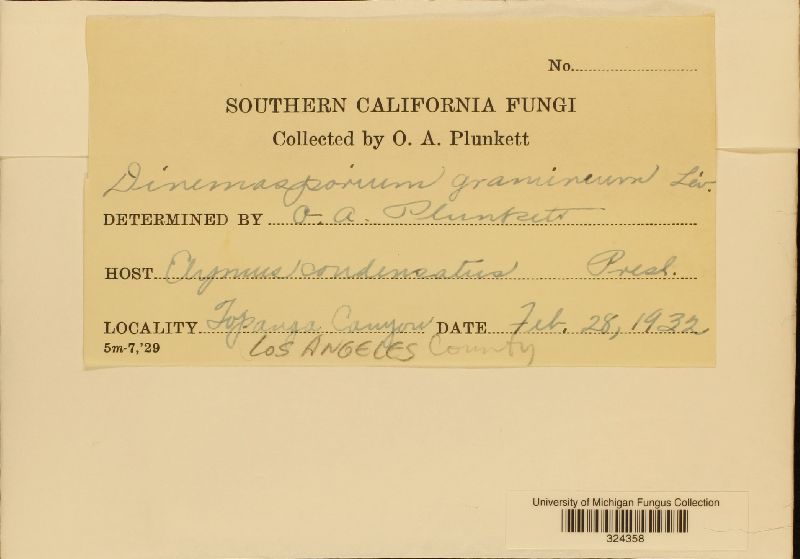 No.
SOUTHERN CALIFORNIA FUNGI
Collected by O. A. Plunkett
Dinemasporium gramineum Lév.
DETERMINED BY O. A. Plunkett
HOST Elymus condensatus Presl.
LOCALITY Topanga Canyon DATE Feb. 28, 1932
5m-7,'29 LOS ANGELES County
University of Michigan Fungus Collection
324358